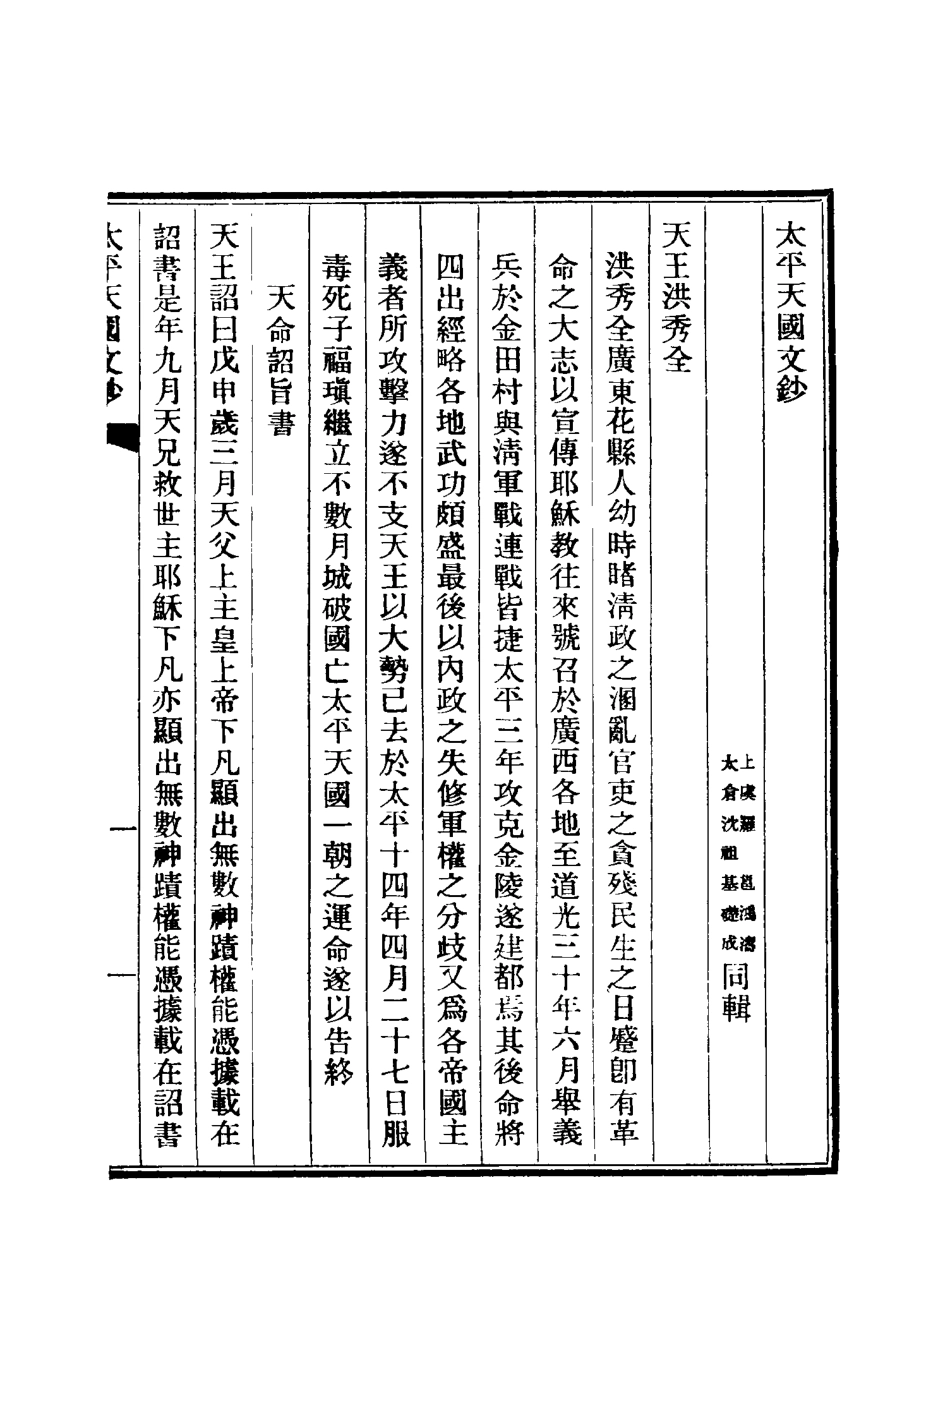 太平天國文鈔
上虞羅邕鴻濤
太倉沈祖基礎成
同輯
天王洪秀全
洪秀全廣東花縣人幼時睹淸政之溷亂官吏之貪殘民生之日蹙卽有革
命之大志以宣傳耶穌教往來號召於廣西各地至道光三十年六月舉義
兵於金田村與淸軍戰連戰皆捷太平三年攻克金陵遂建都焉其後命將
四出經略各地武功頗盛最後以內政之失修軍權之分歧又爲各帝國主
義者所攻擊力遂不支天王以大勢已去於太平十四年四月二十七日服
毒死子福瑱繼立不數月城破國亡太平天國一朝之運命遂以告終
天命詔旨書
天王詔曰戊申歲三月天父上主皇上帝下凡顯出無數神蹟權能憑據載在
詔書是年九月天兄救世主耶穌下凡亦顯出無數神蹟權能憑據載在詔書
太平天國文鈔
一
一